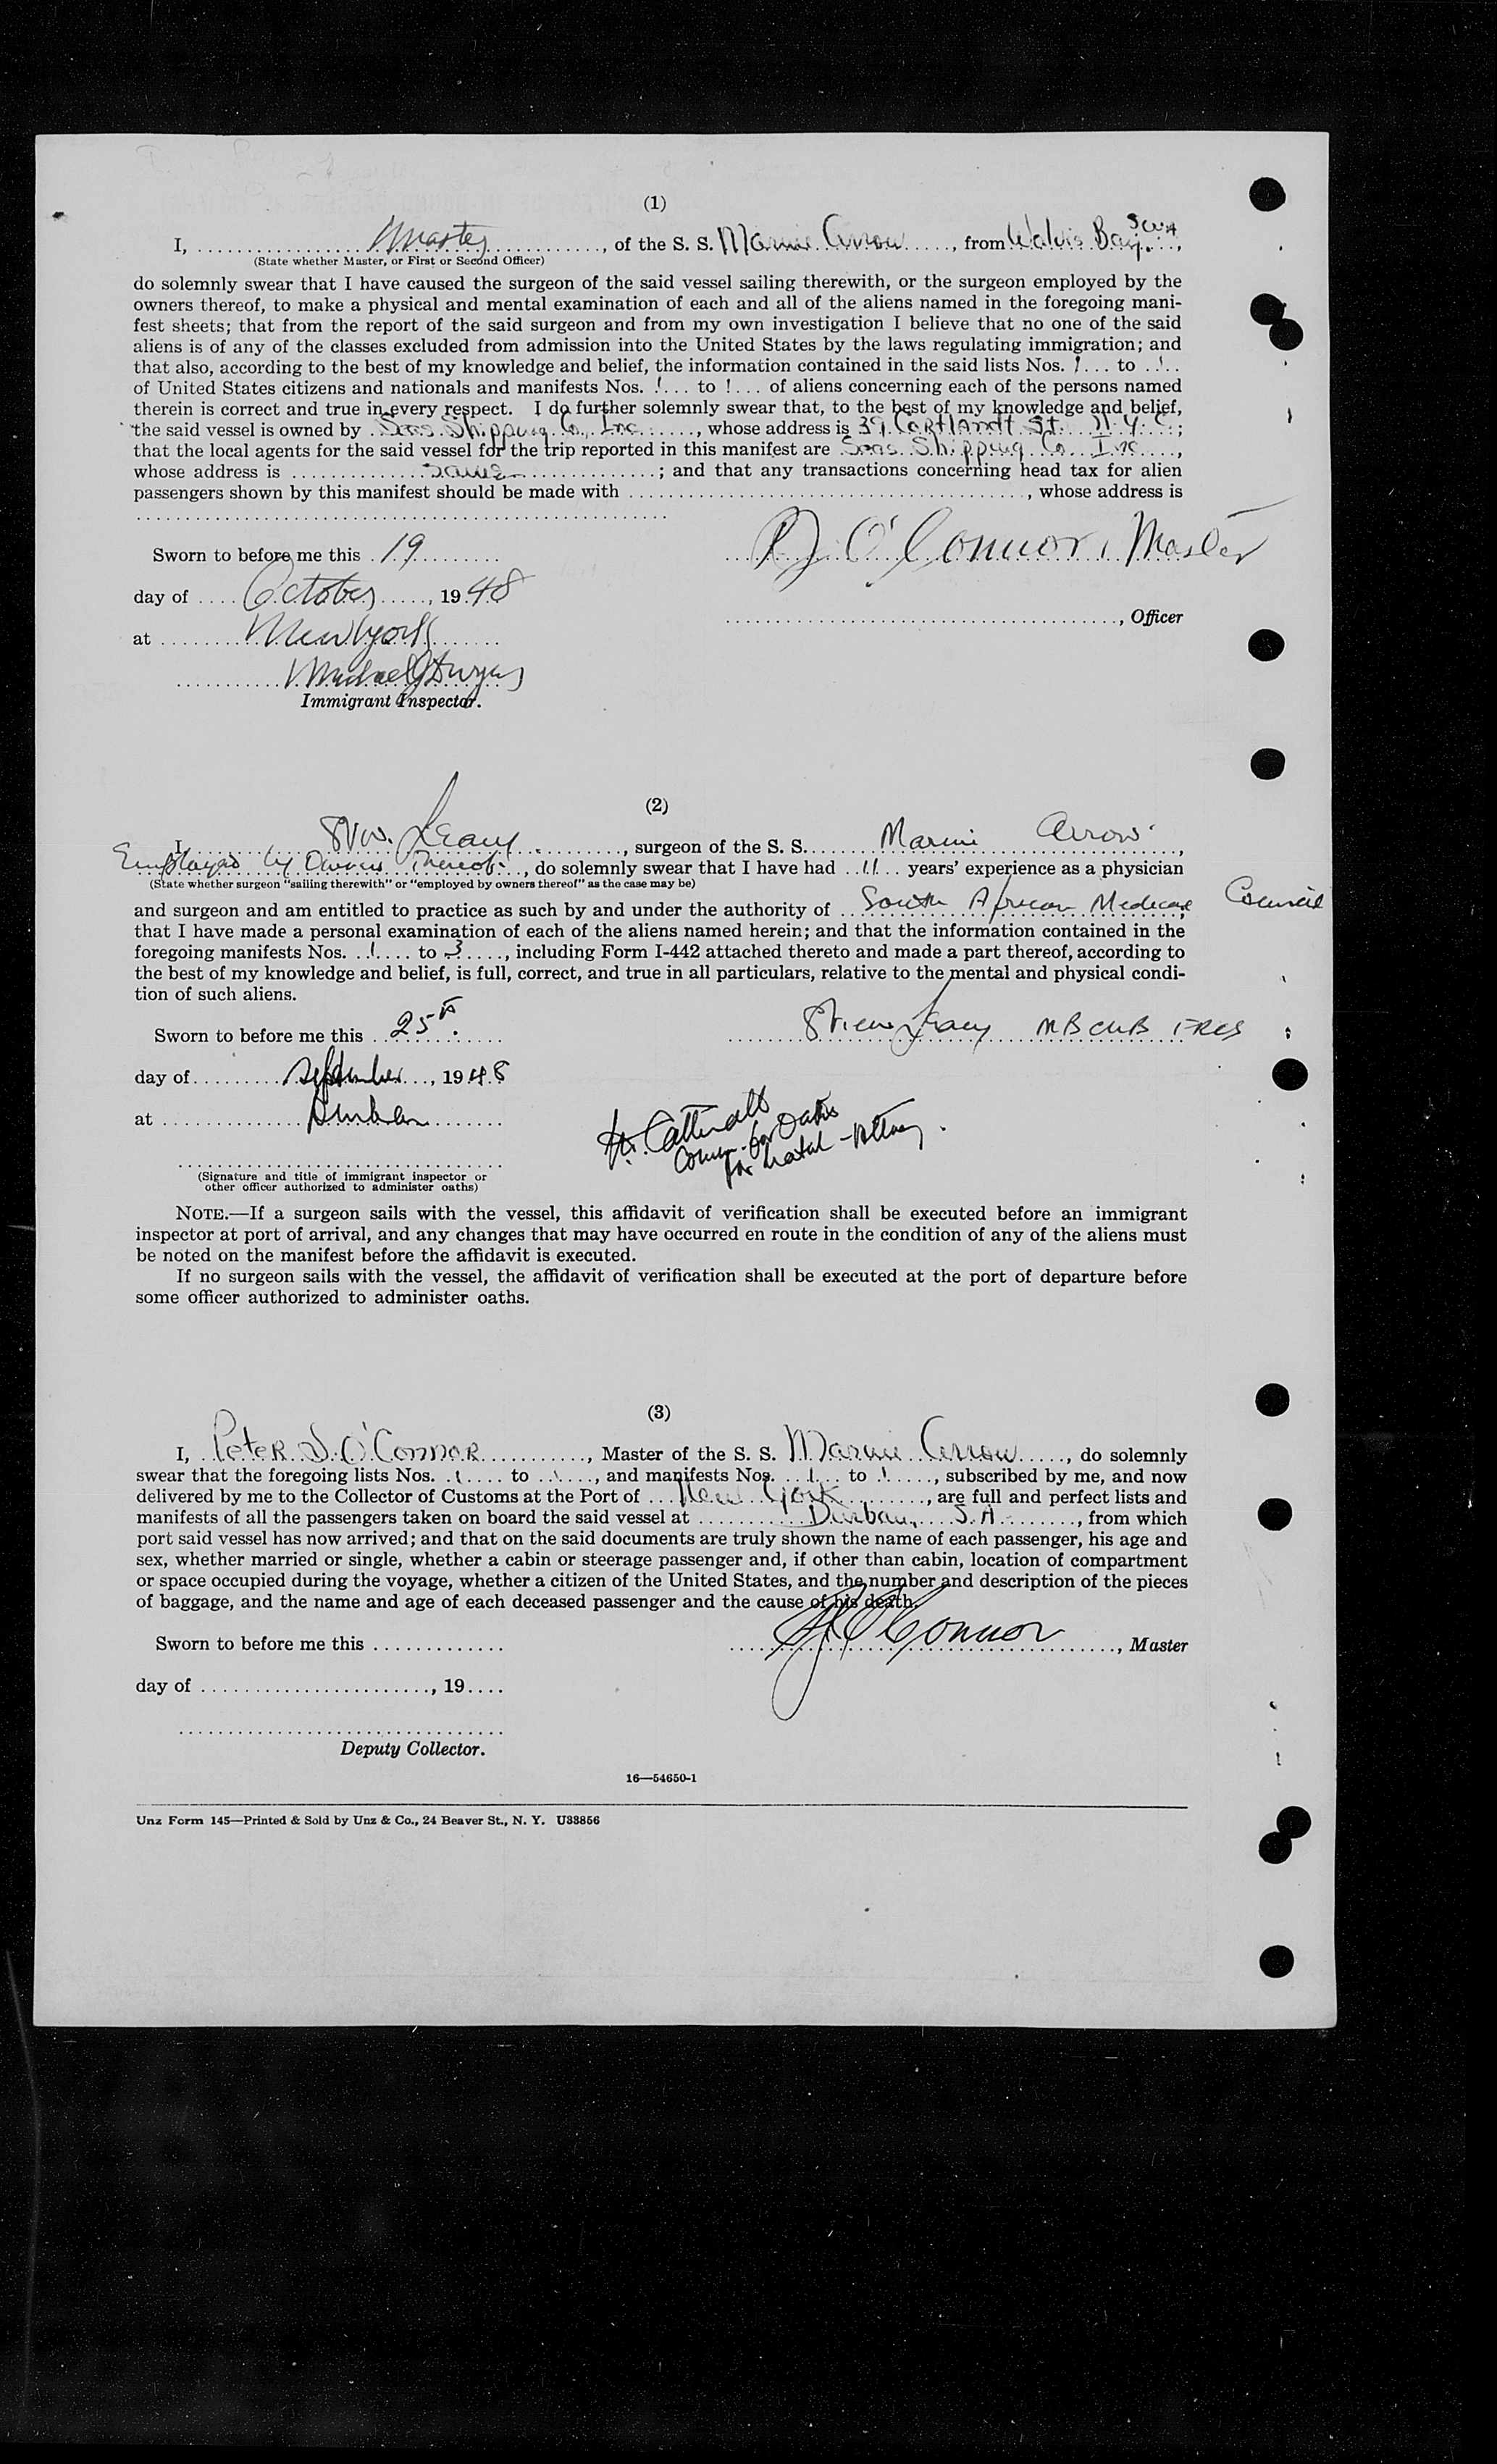 (1)
I, Master, of the S. S. Marine Arrow, from Walvis Bay, S W A,
(State whether Master, or First or Second Officer)
do solemnly swear that I have caused the surgeon of the said vessel sailing therewith, or the surgeon employed by the
owners thereof, to make a physical and mental examination of each and all of the aliens named in the foregoing mani-
fest sheets; that from the report of the said surgeon and from my own investigation I believe that no one of the said
aliens is of any of the classes excluded from admission into the United States by the laws regulating immigration; and
that also, according to the best of my knowledge and belief, the information contained in the said lists Nos. 1 to 1
of United States citizens and nationals and manifests Nos. 1 to 1 of aliens concerning each of the persons named
therein is correct and true in every respect. I do further solemnly swear that, to the best of my knowledge and belief,
the said vessel is owned by Seas Shipping Co., Inc., whose address is 39 Cortlandt St. N.Y.C.;
that the local agents for the said vessel for the trip reported in this manifest are Seas Shipping Co. Inc.,
whose address is same; and that any transactions concerning head tax for alien
passengers shown by this manifest should be made with ........, whose address is
Sworn to before me this 19
O'Connor, Master
day of October, 1948
, Officer
at New York
Michael
Immigrant Inspector.
(2)
I, Leary, surgeon of the S. S. Marine Arrow,
Employed by Owners Thereof, do solemnly swear that I have had 11 years' experience as a physician
(State whether surgeon "sailing therewith" or "employed by owners thereof" as the case may be)
and surgeon and am entitled to practice as such by and under the authority of South African Medical Council
that I have made a personal examination of each of the aliens named herein; and that the information contained in the
foregoing manifests Nos. 1 to 3, including Form I-442 attached thereto and made a part thereof, according to
the best of my knowledge and belief, is full, correct, and true in all particulars, relative to the mental and physical condi-
tion of such aliens.
Sworn to before me this 25th
Leary MB ChB FRCS
day of September, 1948
at Durban
Comm. for Oaths
for Natal
(Signature and title of immigrant inspector or
other officer authorized to administer oaths)
NOTE.—If a surgeon sails with the vessel, this affidavit of verification shall be executed before an immigrant
inspector at port of arrival, and any changes that may have occurred en route in the condition of any of the aliens must
be noted on the manifest before the affidavit is executed.
If no surgeon sails with the vessel, the affidavit of verification shall be executed at the port of departure before
some officer authorized to administer oaths.
(3)
I, Peter J. O'Connor, Master of the S. S. Marine Arrow, do solemnly
swear that the foregoing lists Nos. 1 to 1, and manifests Nos. 1 to 1, subscribed by me, and now
delivered by me to the Collector of Customs at the Port of New York, are full and perfect lists and
manifests of all the passengers taken on board the said vessel at Durban, S.A., from which
port said vessel has now arrived; and that on the said documents are truly shown the name of each passenger, his age and
sex, whether married or single, whether a cabin or steerage passenger and, if other than cabin, location of compartment
or space occupied during the voyage, whether a citizen of the United States, and the number and description of the pieces
of baggage, and the name and age of each deceased passenger and the cause of his death.
Sworn to before me this
PJ O'Connor, Master
day of ........, 19....
Deputy Collector.
16—54650-1
Unz Form 145—Printed & Sold by Unz & Co., 24 Beaver St., N. Y. U33856